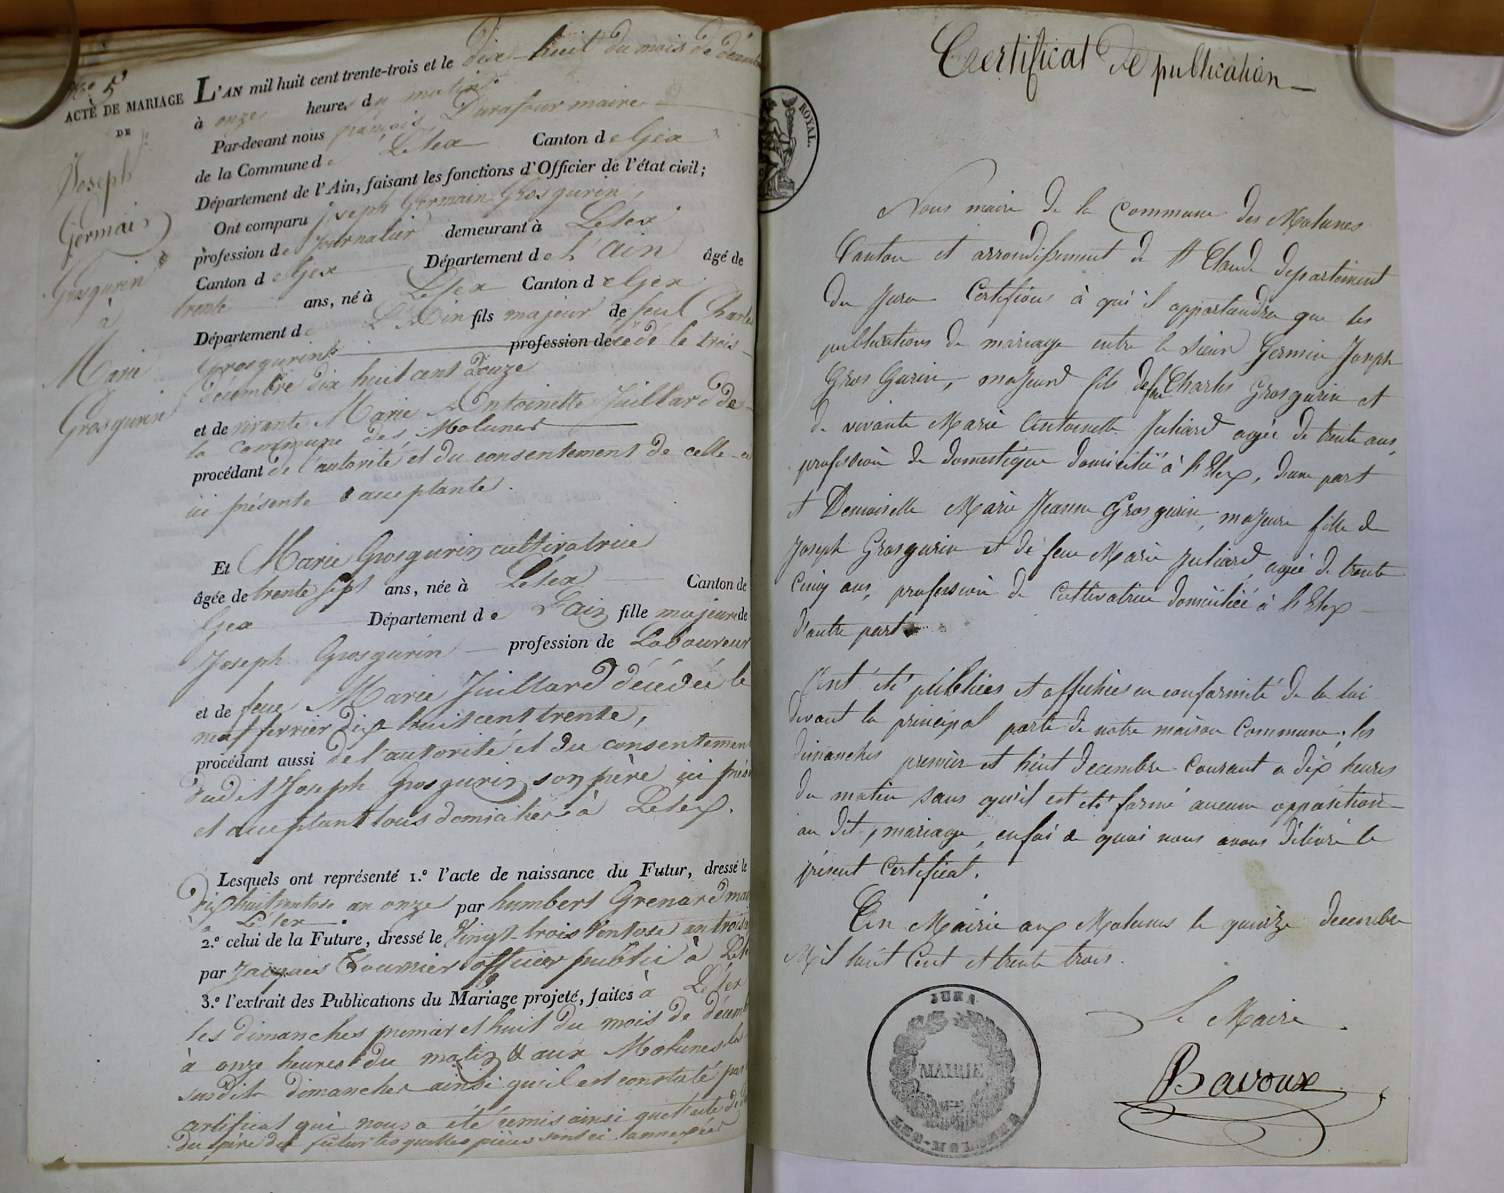 N.o 5
ACTE DE MARIAGE
DE
Joseph
Germain
Grosgurin
à
Marie
Grosgurin
L'AN mil huit cent trente-trois et le dix huit du mois de décemb
à onze heures du matin
Par-devant nous françois Durafour maire
de la Commune de Lelex Canton de Gex
Département de l'Ain, faisant les fonctions d'Officier de l'état civil;
Ont comparu Joseph Germain Grosgurin,
profession de Journalier demeurant à Lelex
Canton de Gex Département de L'ain âgé de
trente ans, né à Lelex Canton de Gex
Département de L'Ain fils majeur de feu Charles
Grosgurin profession de cédé le trois
décembre dix huit cent douze
et de vivante Marie Antoinette Juillard de
la Commune des Molunes
procédant de l'autorité et du consentement de celle-ci
ici présente & acceptante.
Et Marie Grosgurin cultivatrice
âgée de trente sept ans, née à Lelex Canton de
Gex Département de L'ain fille majeure de
Joseph Grosgurin profession de Laboureur
et de feue Marie Juillard décédée le
neuf fevrier dix huit cent trente,
procédant aussi de l'autorité et du consentement
dudit Joseph Grosgurin son père ici prés
et acceptant tous domiciliés à Lelex.
Lesquels ont représenté 1.º l'acte de naissance du Futur, dressé le
dix huit ventose an onze par humbert Grenard mai
à Lelex
2.º celui de la Future, dressé le Vingt trois Ventose an trois
par Jacques Tournier officier public à Lele
3.º l'extrait des Publications du Mariage projeté, faites à Lelex
les dimanches premier et huit du mois de décemb
à onze heures du matin & aux Molunes les
susdits dimanches ainsi qu'il est constaté par
certificat qui nous a été remis ainsi que l'acte de d
du père du futur lesquelles pièces sont ici annexées
Certificat de publication
ROYAL.
Nous maire de la Commune des Molunes
Canton et arrondissement de St Claude departement
du Jura Certifions à qui il appartiendra que les
publications de mariage entre le Sieur Germin Joseph
Gros Gurin, majeur fils de feu Charles Grosgurin et
de vivante Marie Antoinette Juliard agée de trente ans,
profession de domestique domicilié à h Elex, d'une part
et Demoiselle Marie Jeanne Grosgurin, majeure fille de
Joseph Grosgurin et de feue Marie Juliard, agée de trente
Cinq ans, profession de Cultivatrice domiciliée à h Elex
d'autre part
Ont été publiées et affichées en conformité de la loi
devant la principal porte de notre maison Commune, les
dimanches premier et huit decembre Courant a dix heures
du matin sans qu'il est été formé aucune opposition
au dit mariage, en foi de quoi nous avons délivré le
présent Certificat.
En Mairie aux Molunes le quinze decembre
Mil huit Cent et trente trois.
Le Maire
Bavoux
JURA
MAIRIE